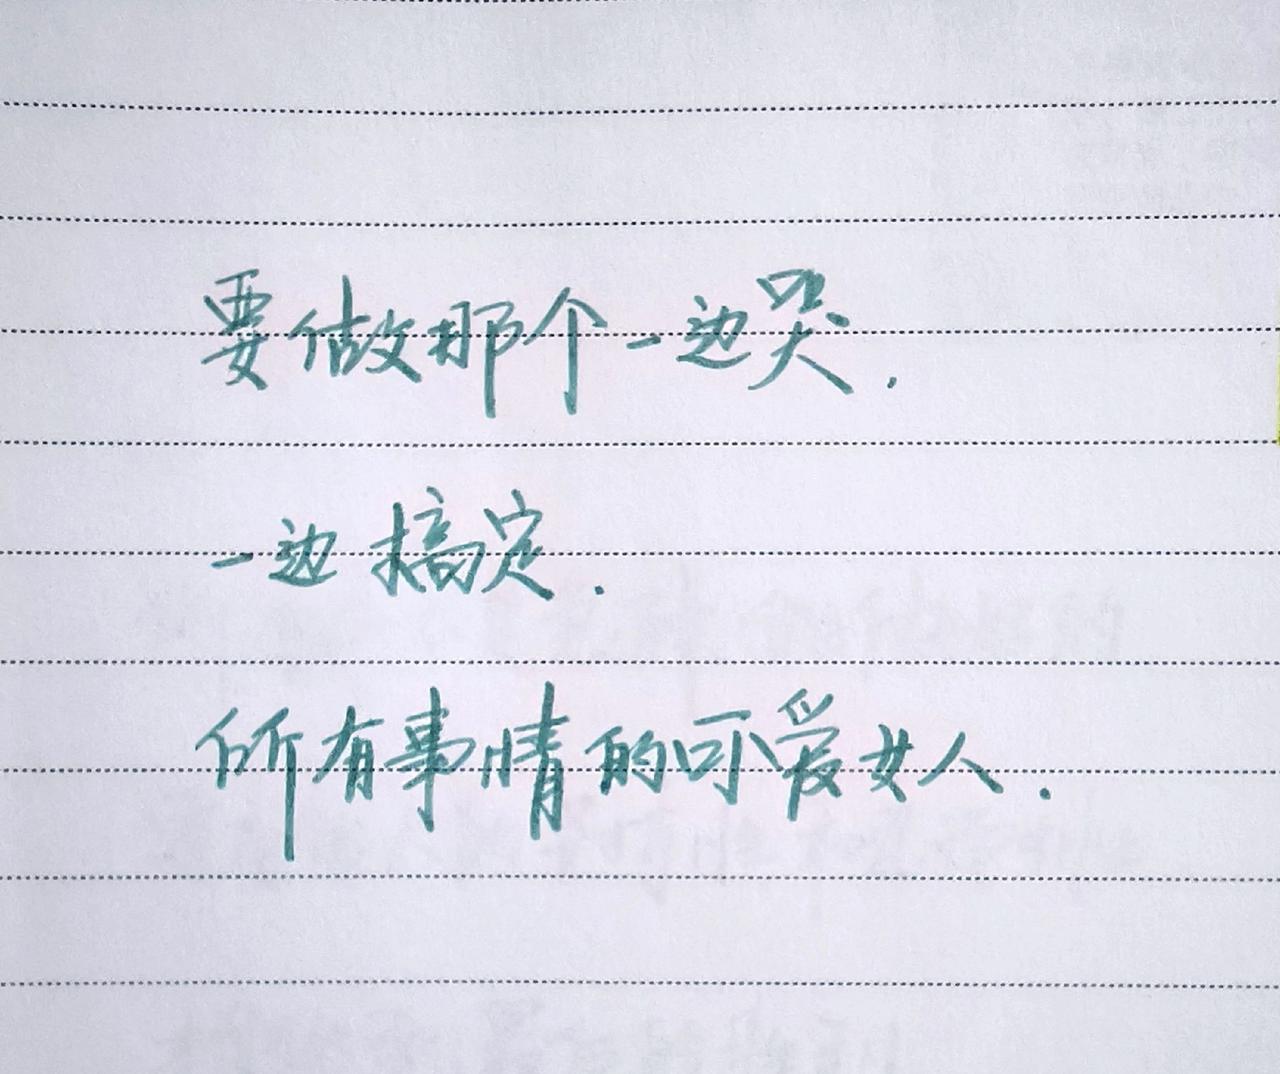 要做那个一边哭，
一边搞定.
所有事情的可爱女人.